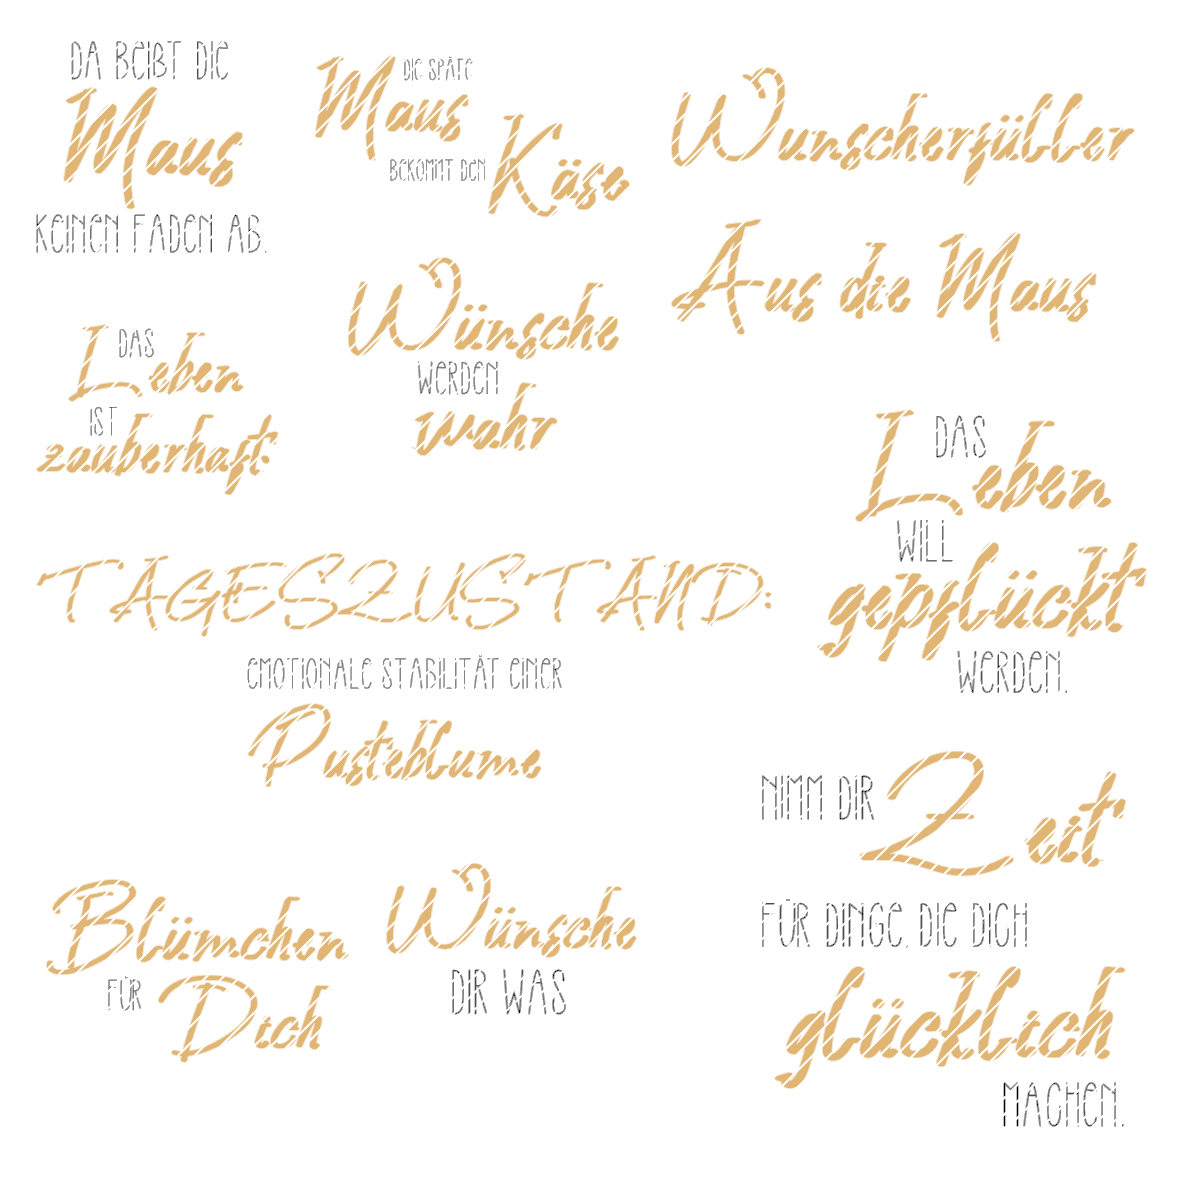 DA BEIßT DIE
Maus
KEINEN FADEN AB.
DIE SPÄTE
Maus
BEKOMMT DEN
Käse
Wunscherfüller
Aus die Maus
DAS
Leben
IST
zauberhaft
Wünsche
WERDEN
wahr
DAS
Leben
WILL
gepflückt
WERDEN.
TAGESZUSTAND:
EMOTIONALE STABILITÄT EINER
Pusteblume
NIMM DIR
Zeit
FÜR DINGE, DIE DICH
glücklich
MACHEN.
Blümchen
FÜR
Dich
Wünsche
DIR WAS